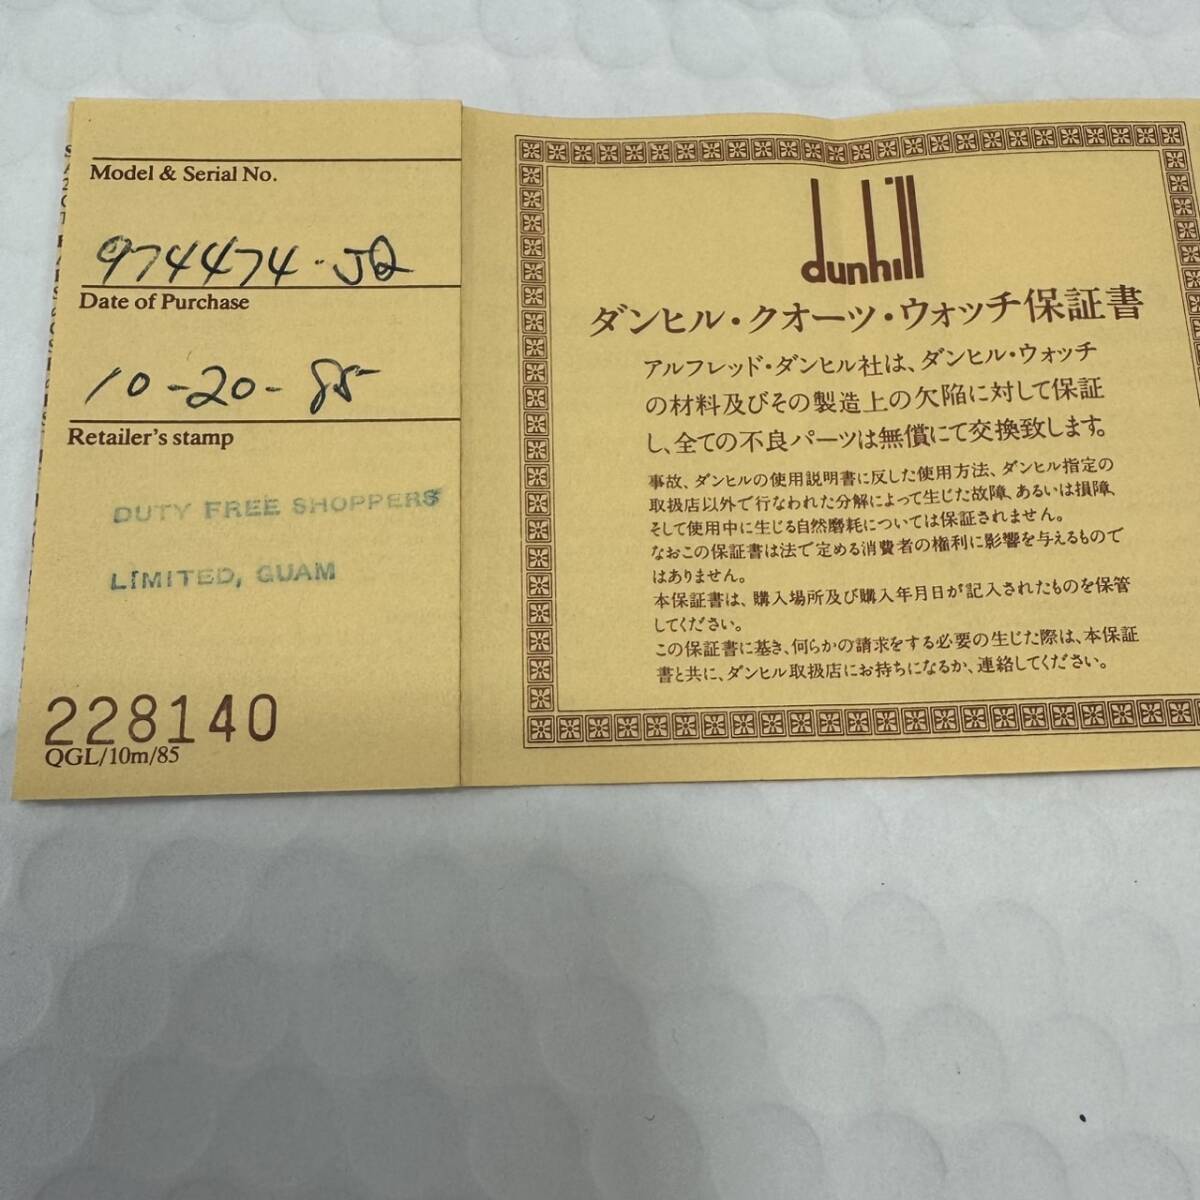 Model & Serial No.
974474-JQ
Date of Purchase
10-20-85
Retailer's stamp
DUTY FREE SHOPPERS
LIMITED, GUAM
228140
QGL/10m/85
dunhill
ダンヒル・クオーツ・ウォッチ保証書
アルフレッド・ダンヒル社は、ダンヒル・ウォッチ
の材料及びその製造上の欠陥に対して保証
し、全ての不良パーツは無償にて交換致します。
事故、ダンヒルの使用説明書に反した使用方法、ダンヒル指定の
取扱店以外で行なわれた分解によって生じた故障、あるいは損障、
そして使用中に生じる自然磨耗については保証されません。
なおこの保証書は法で定める消費者の権利に影響を与えるもので
はありません。
本保証書は、購入場所及び購入年月日が記入されたものを保管
してください。
この保証書に基き、何らかの請求をする必要の生じた際は、本保証
書と共に、ダンヒル取扱店にお持ちになるか、連絡してください。